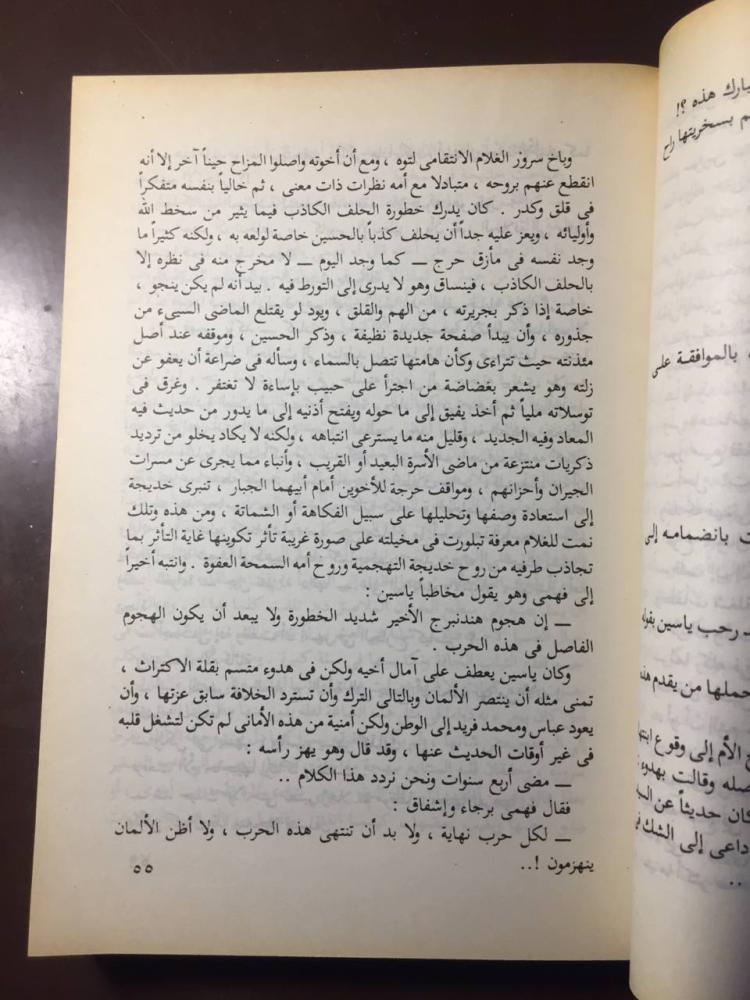 وباخ سرور الغلام الانتقامى لتوه ، ومع أن أخوته واصلوا المزاح حيناً آخر إلا أنه
انقطع عنهم بروحه ، متبادلا مع أمه نظرات ذات معنى ، ثم خاليا بنفسه متفكراً
فى قلق وكدر . كان يدرك خطورة الحلف الكاذب فيما يثير من سخط الله
وأوليائه ، ويعز عليه جداً أن يحلف كذباً بالحسين خاصة لولعه به ، ولكنه كثيراً ما
وجد نفسه فى مأزق حرج ــ كما وجد اليوم ــ لا مخرج منه فى نظره إلا
بالحلف الكاذب ، فينساق وهو لا يدرى إلى التورط فيه . بيد أنه لم يكن ينجو ،
خاصة إذا ذكر بجريرته ، من الهم والقلق ، ويود لو يقتلع الماضى السيىء من
جذوره ، وأن يبدأ صفحة جديدة نظيفة ، وذكر الحسين ، وموقفه عند أصل
مئذنته حيث تتراءى وكأن هامتها تتصل بالسماء ، وسأله فى ضراعة أن يعفو عن
زلته وهو يشعر بغضاضة من اجترأ على حبيب بإساءة لا تغتفر . وغرق فى
توسلاته ملياً ثم أخذ يفيق إلى ما حوله ويفتح أذنيه إلى ما يدور من حديث فيه
المعاد وفيه الجديد ، وقليل منه ما يسترعى انتباهه ، ولكنه لا يكاد يخلو من ترديد
ذكريات منتزعة من ماضى الأسرة البعيد أو القريب ، وأنباء مما يجرى عن مسرات
الجيران وأحزانهم ، ومواقف حرجة للأخوين أمام أبيهما الجبار ، تنبرى خديجة
إلى استعادة وصفها وتحليلها على سبيل الفكاهة أو الشماتة ، ومن هذه وتلك
نمت للغلام معرفة تبلورت فى مخيلته على صورة غريبة تأثر تكوينها غاية التأثر بما
تجاذب طرفيه من روح خديجة التهجمية وروح أمه السمحة العفوة . وانتبه أخيراً
إلى فهمى وهو يقول مخاطباً ياسين :
ــ إن هجوم هندنبرج الأخير شديد الخطورة ولا يبعد أن يكون الهجوم
الفاصل فى هذه الحرب .
وكان ياسين يعطف على آمال أخيه ولكن فى هدوء متسم بقلة الاكتراث ،
تمنى مثله أن ينتصر الألمان وبالتالى الترك وأن تسترد الخلافة سابق عزتها ، وأن
يعود عباس ومحمد فريد إلى الوطن ولكن أمنية من هذه الأمانى لم تكن لتشغل قلبه
فى غير أوقات الحديث عنها ، وقد قال وهو يهز رأسه :
ــ مضى أربع سنوات ونحن نردد هذا الكلام ..
فقال فهمى برجاء وإشفاق :
ــ لكل حرب نهاية ، ولا بد أن تنتهى هذه الحرب ، ولا أظن الألمان
ينهزمون !..
٥٥
هذه ؟!
بسخريتها راح
بالموافقة على
بانضمامه إلى
ــ رحب ياسين
من يقدم
الأم إلى وقوع
وقالت بهدوء
حديثاً عن
إلى الشك
..